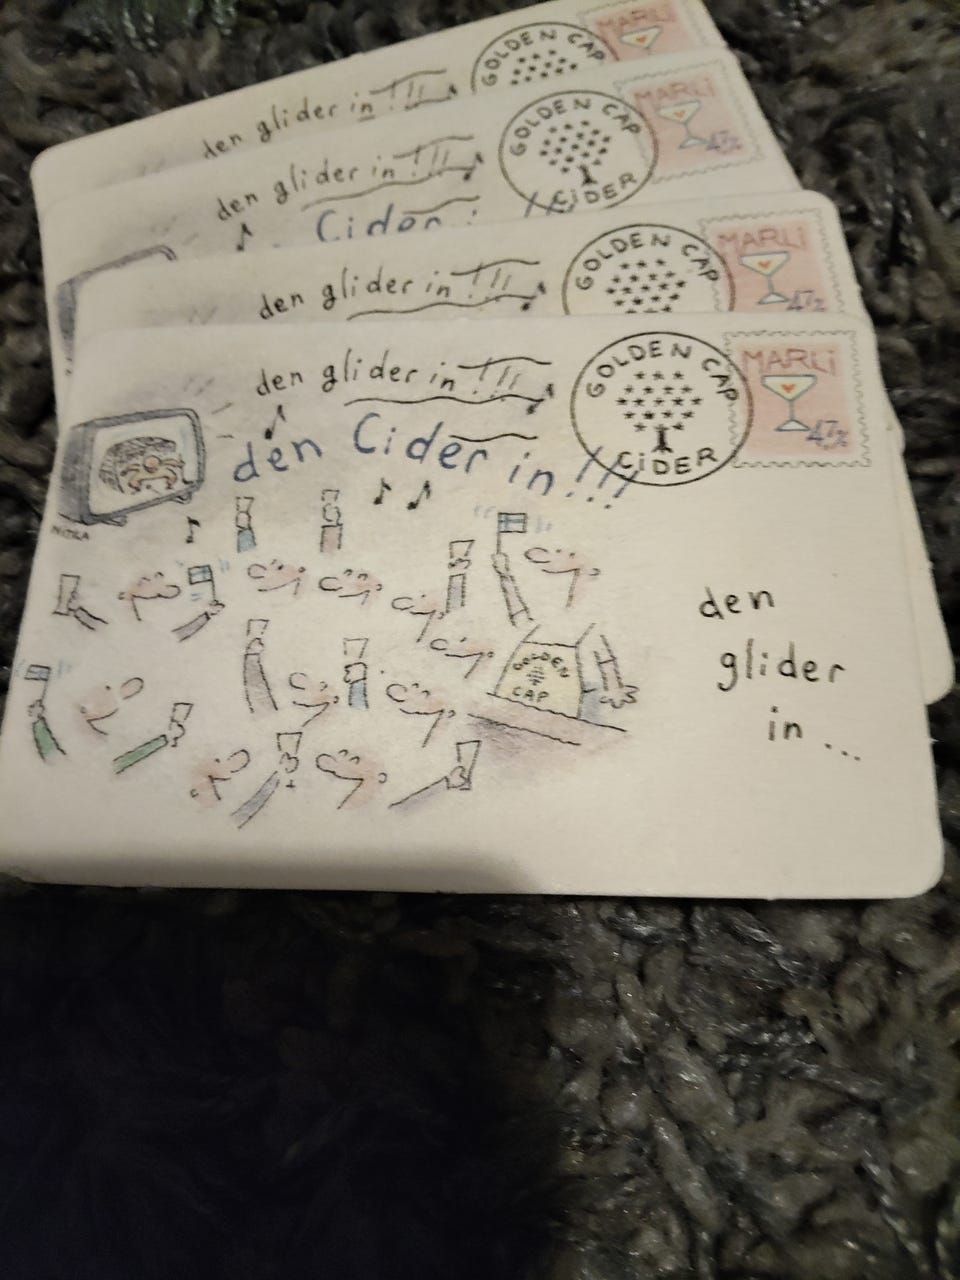 den glider in !!!
GOLDEN CAP
CiDER
MARLi
den glider in !!!
GOLDEN CAP
CiDER
MARLi
47%
Cider
den glider in !!!
GOLDEN CAP
MARLi
47%
den glider in !!!
GOLDEN CAP
CiDER
MARLi
47%
den Cider in!!!
GOLDEN
CAP
den
glider
in ...